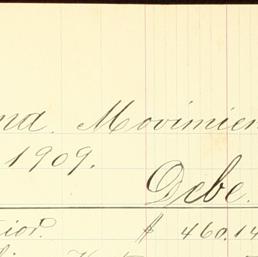 nd. Movimien
1909.
Debe.
rior. $ 460.14